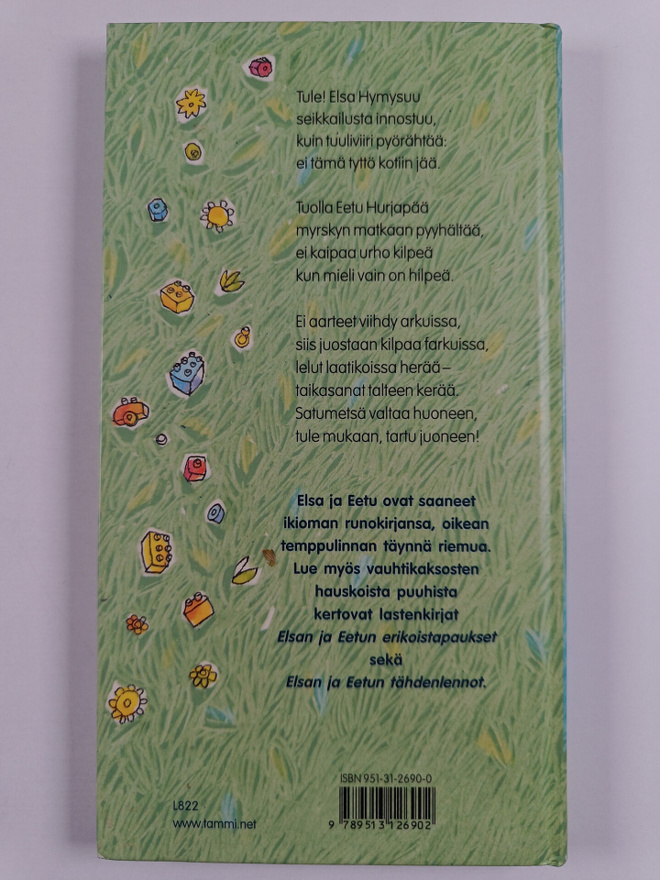 Tule! Elsa Hymysuu
seikkailusta innostuu,
kuin tuuliviiri pyörähtää:
ei tämä tyttö kotiin jää.
Tuolla Eetu Hurjapää
myrskyn matkaan pyyhältää,
ei kaipaa urho kilpeä
kun mieli vain on hilpeä.
Ei aarteet viihdy arkuissa,
siis juostaan kilpaa farkuissa,
lelut laatikoissa herää–
taikasanat talteen kerää.
Satumetsä valtaa huoneen,
tule mukaan, tartu juoneen!
Elsa ja Eetu ovat saaneet
ikioman runokirjansa, oikean
temppulinnan täynnä riemua.
Lue myös vauhtikaksosten
hauskoista puuhista
kertovat lastenkirjat
Elsan ja Eetun erikoistapaukset
sekä
Elsan ja Eetun tähdenlennot.
ISBN 951-31-2690-0
L822
www.tammi.net
9 789513 126902